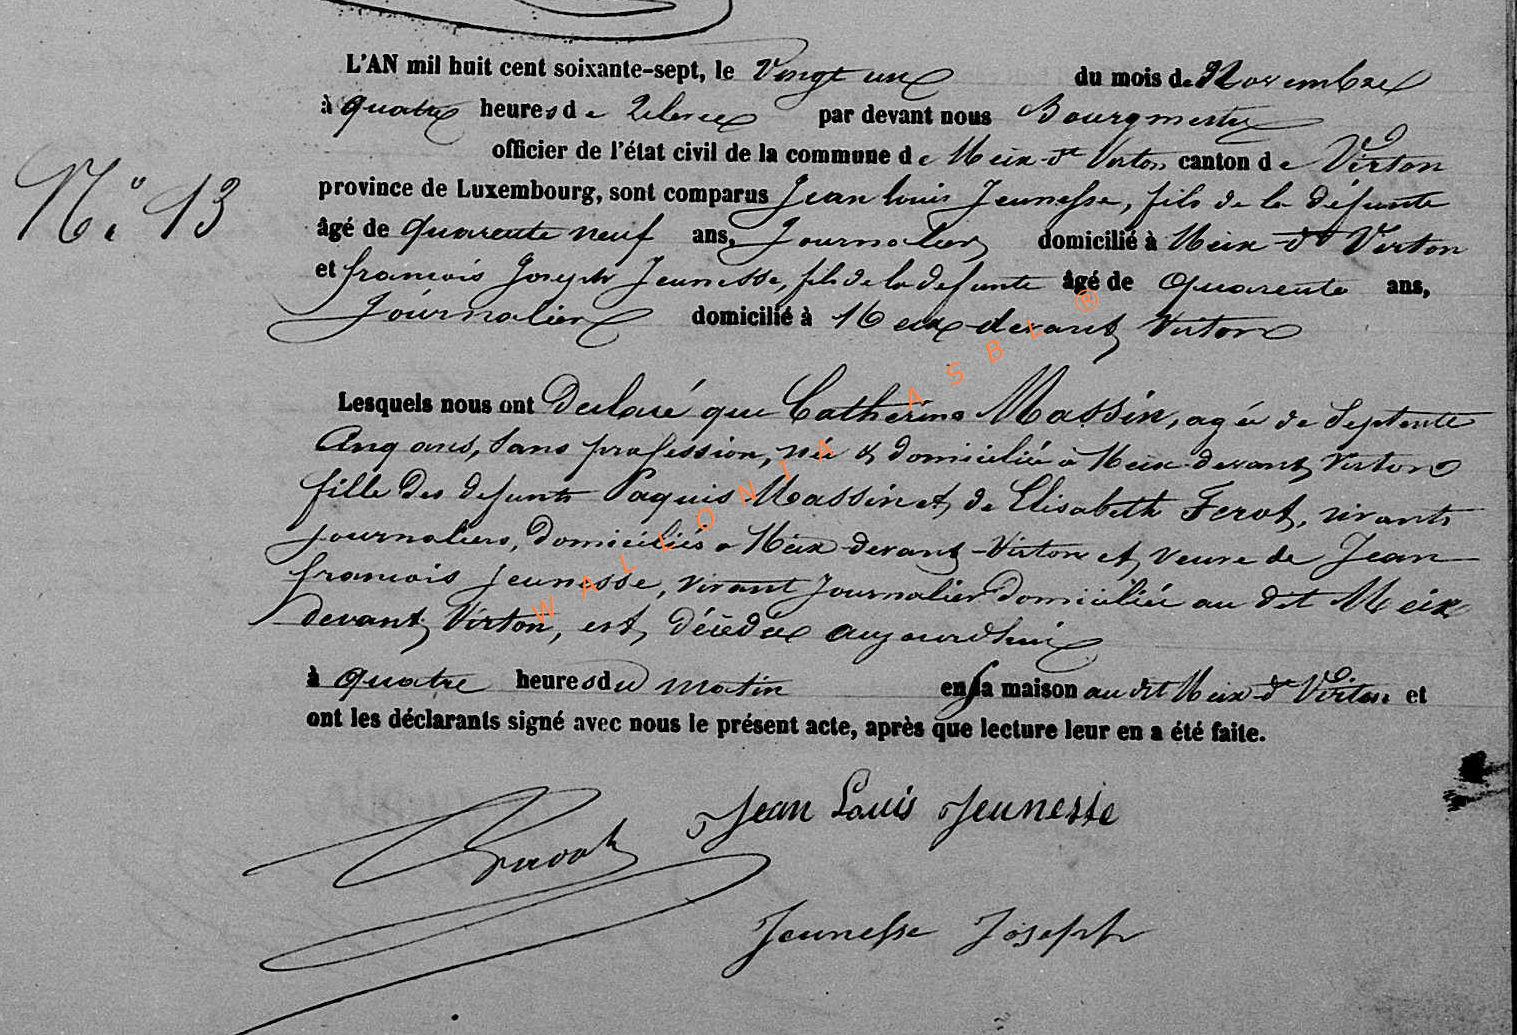 L'AN mil huit cent soixante-sept, le Vingt un du mois de Novembre
à quatre heures de Relevée par devant nous Bourgmestre
officier de l'état civil de la commune de Meix-dt Virton canton de Virton
N° 13
province de Luxembourg, sont comparus Jean louis Jeunesse, fils de la défunte
âgé de Quarente neuf ans, Journalier domicilié à Meix dt Virton
et françois Joseph Jeunesse, fils de la defunte âgé de Quarente ans,
Journalier domicilié à Meix-devant Virton
Lesquels nous ont Declaré que Catherine Massin, agée de Septente
Cinq ans, Sans profession, née & domiciliée à Meix-devant Virton
fille des defunts Paquis Massin et de Elisabeth Ferot, vivants
journaliers, domiciliés a Meix-devant-Virton et veuve de Jean
françois jeunesse, vivant Journalier domiciliée au dit Meix
devant Virton, est décédée aujourdhui
à quatre heures du matin en sa maison au dit Meix-dt Virton et
ont les déclarants signé avec nous le présent acte, après que lecture leur en a été faite.
Jean Louis Jeunesse
Jeunesse Joseph
WALLONIA ASBL ®